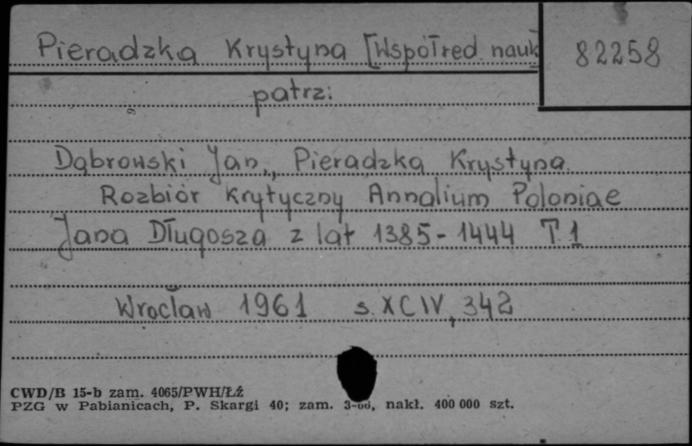 Pieradzka Krystyna [Współred. nauk
82258
patrz:
Dąbrowski Jan,, Pieradzka Krystyna
Rozbiór Krytyczny Annalium Poloniae
Jana Długosza z lat 1385-1444 T 1
Wrocław 1961 s. XCIV, 342
CWD/B 15-b zam. 4065/PWH/Łź
PZG w Pabianicach, P. Skargi 40; zam. 3-66, nakł. 400 000 szt.